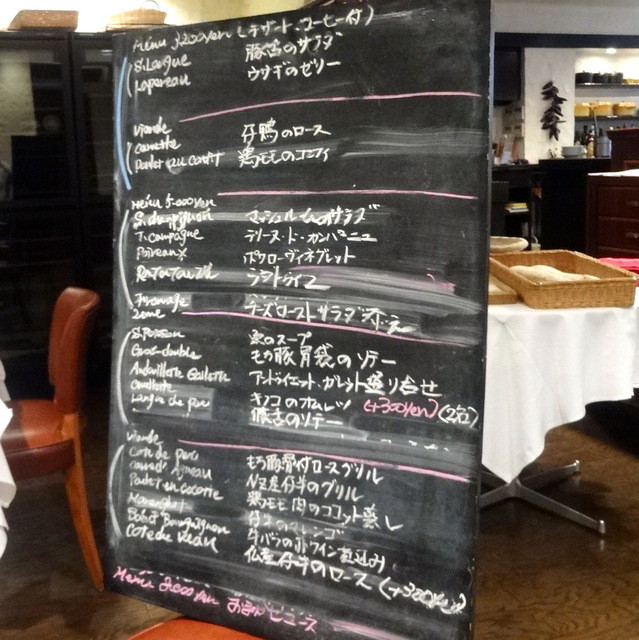 Menu 3200yen (デザート.コーヒー付)
S. Langue 豚舌のサラダ
Lapereau ウサギのゼリー
Viande
Canette 仔鴨のロース
Poulet au confit 鶏モモのコンフィ
Menu 5000yen
S. champignon マッシュルームのサラダ
T. campagne テリーヌ・ド・カンパーニュ
Poireaux ポワローヴィネグレット
Ratatouille ラタトゥイユ
Fromage チーズローストサラダ添え
2eme
S. Poisson 魚のスープ
Gras-double もち豚胃袋のソテー
Andouillette Galette アンドゥイエット・ガレット盛り合せ
Omelette キノコのオムレツ (+300yen) (2名)
Langue de porc 豚舌のソテー
Viande
Cote de porc もち豚骨付ロースグリル
Agneau NZ産仔羊のグリル
Poulet en cocotte 鶏モモ肉のココット蒸し
マレンゴ
Boeuf Bourguignon 牛バラの赤ワイン煮込み
Cote de Veau 仏産仔牛のロース (+300yen)
Menu